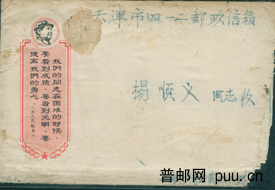 天津市四一二邮政信箱
楊順义 同志收
我們的同志在困难的时候,
要看到成績,要看到光明,要
提高我們的勇气。
普邮网 puu.cn